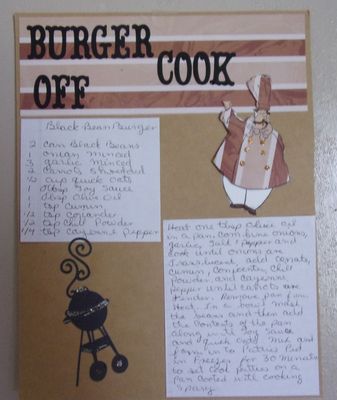 BURGER
COOK
OFF
Black Bean Burger
2 can Black Beans
1 onion minced
3 garlic minced
2 carrots shredded
cup quick oats
1 tbsp Soy Sauce
1 tbsp Olive Oil
1 tsp Cumin
1/2 tsp Coriander
1/2 tsp Chili Powder
1/4 tsp Cayenne Pepper
Heat one tbsp Olive oil
in a pan. Combine onions,
garlic, Salt & Pepper and
cook until onions are
translucent. add carrots,
cumin, Chili
Powder and cayenne
pepper until carrots are
tender. Remove pan from
Heat. In a bowl mash
the beans and then add
the contents of the pan
along with Soy Sauce
and quick oats. Mix and
form in to Patties. Put
in Freezer for 30 Minutes
to set. Cook patties on a
pan coated with cooking
Spray.